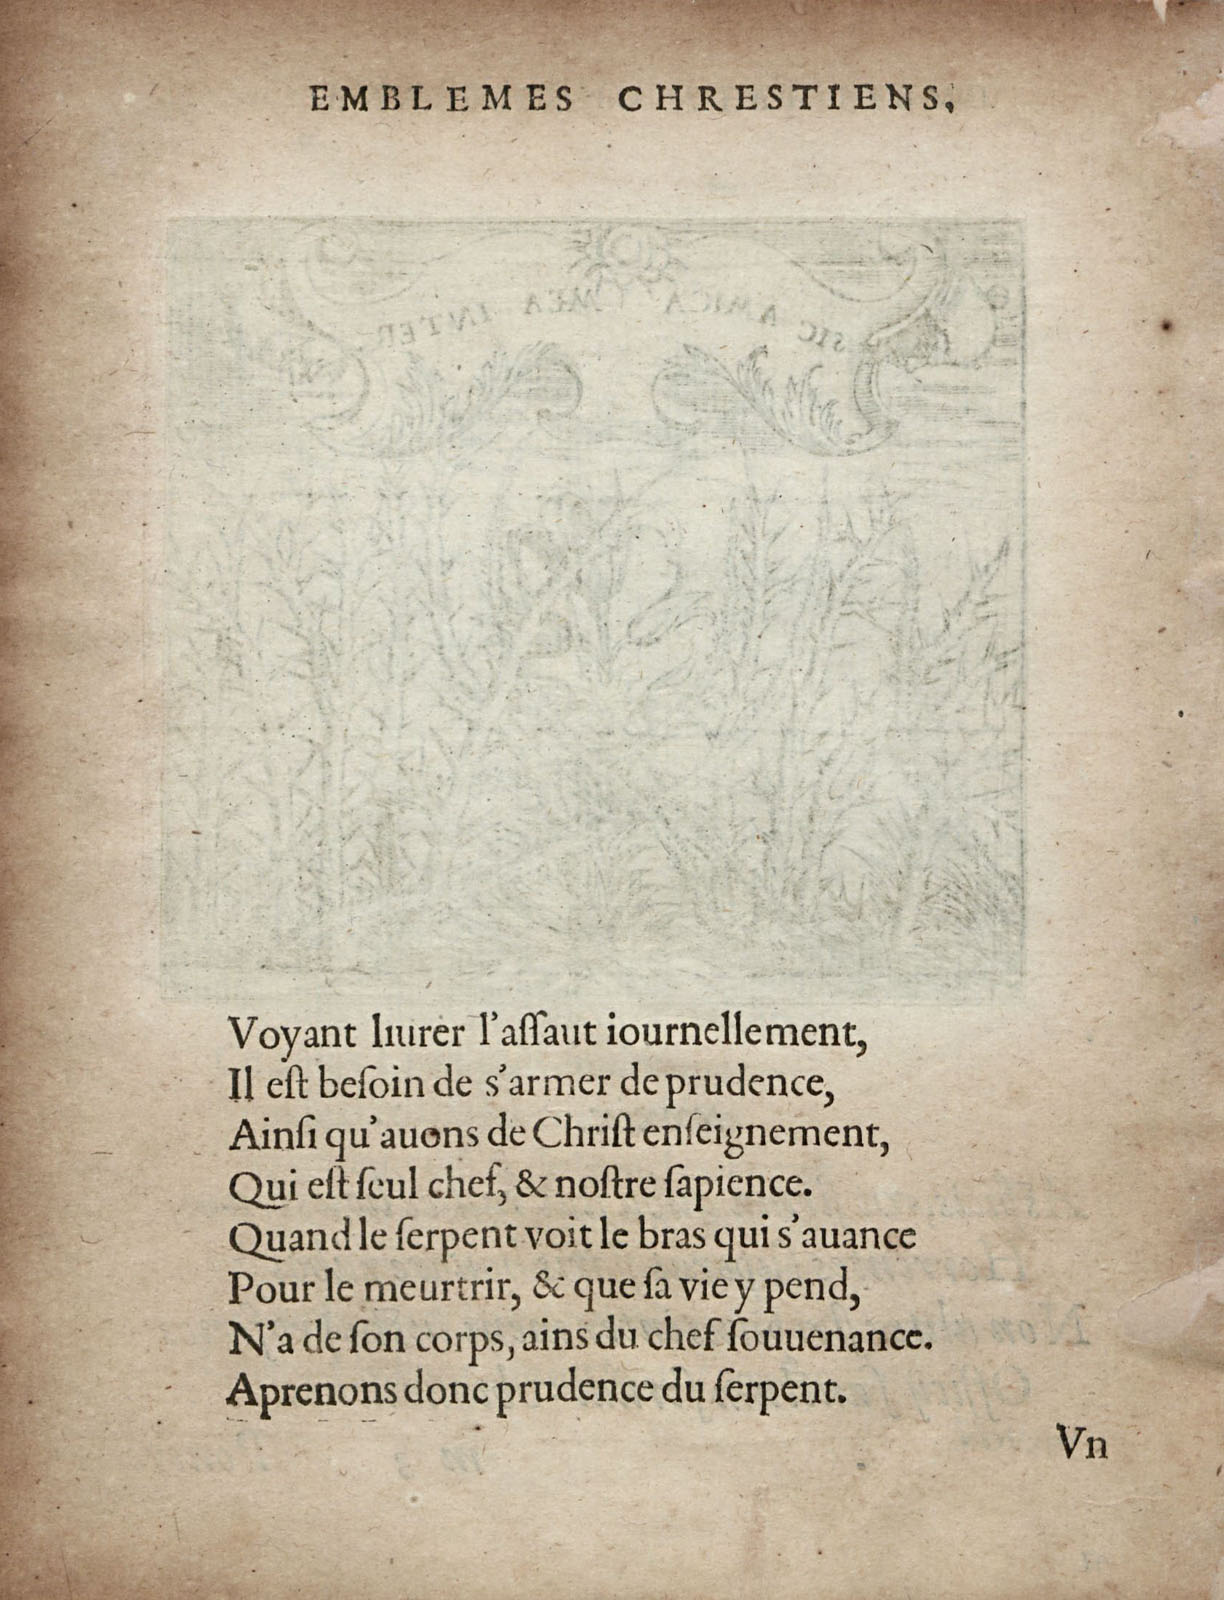 EMBLEMES CHRESTIENS,
SIC AMICA MEA INTER
Voyant liurer l'aſſaut iournellement,
Il eſt beſoin de s'armer de prudence,
Ainſi qu'auons de Chriſt enſeignement,
Qui eſt ſeul chef, & noſtre ſapience.
Quand le ſerpent voit le bras qui s'auance
Pour le meurtrir, & que ſa vie y pend,
N'a de ſon corps, ains du chef ſouuenance.
Aprenons donc prudence du ſerpent.
Vn